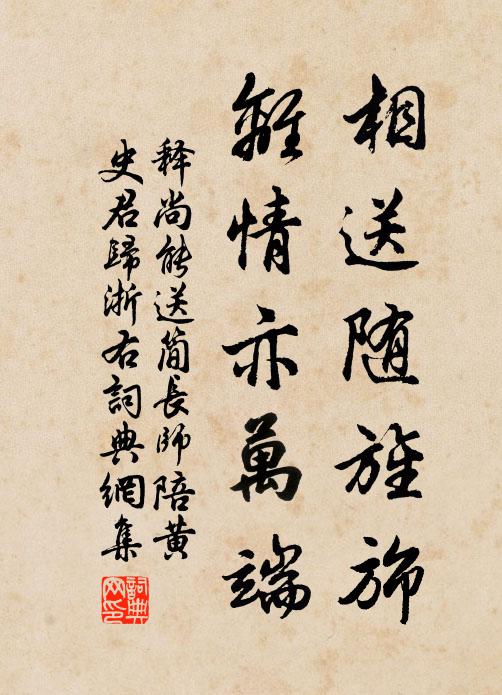 相送随旌旆
離情亦萬端
释尚能送简長师陪黄
史君歸浙右詞典網集
詞典网印